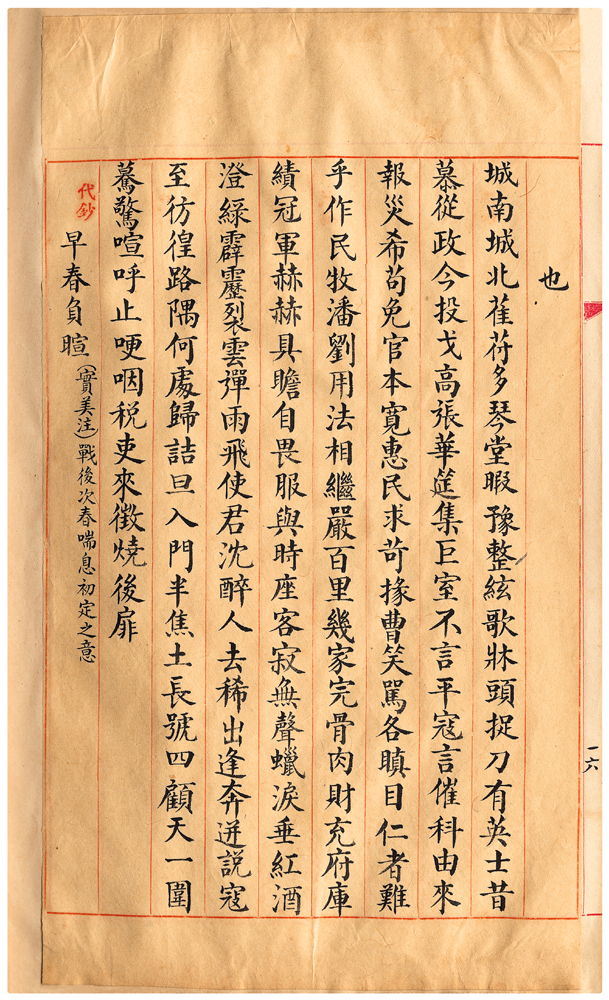 也
城南城北萑苻多琴堂暇豫整絃歌牀頭捉刀有英士昔
慕從政今投戈高張華筵集巨室不言平寇言催科由來
報災希苟免官本寬惠民求苛掾曹笑罵各瞋目仁者難
乎作民牧潘劉用法相繼嚴百里幾家完骨肉財充府庫
績冠軍赫赫具瞻自畏服與時座客寂無聲蠟淚垂紅酒
澄綠霹靂裂雲彈雨飛使君沈醉人去稀出逢奔迸説寇
至彷徨路隅何處歸詰旦入門半焦土長號四顧天一圍
驀驚喧呼止哽咽税吏來徵燒後扉
代鈔
早春負暄（實美注）戰後次春喘息初定之意
一六